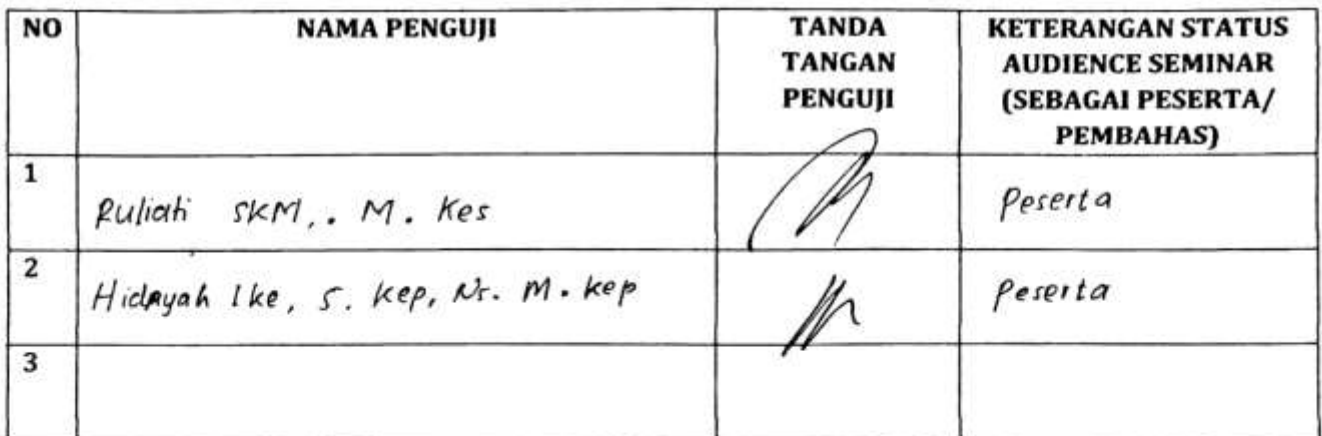 NO NAMA PENGUJI TANDA TANGAN PENGUJI KETERANGAN STATUS AUDIENCE SEMINAR (SEBAGAI PESERTA/ PEMBAHAS)
1 Ruliati SKM,. M. Kes Peserta
2 Hidayah Ike, S. Kep, Ns. M. Kep Peserta
3